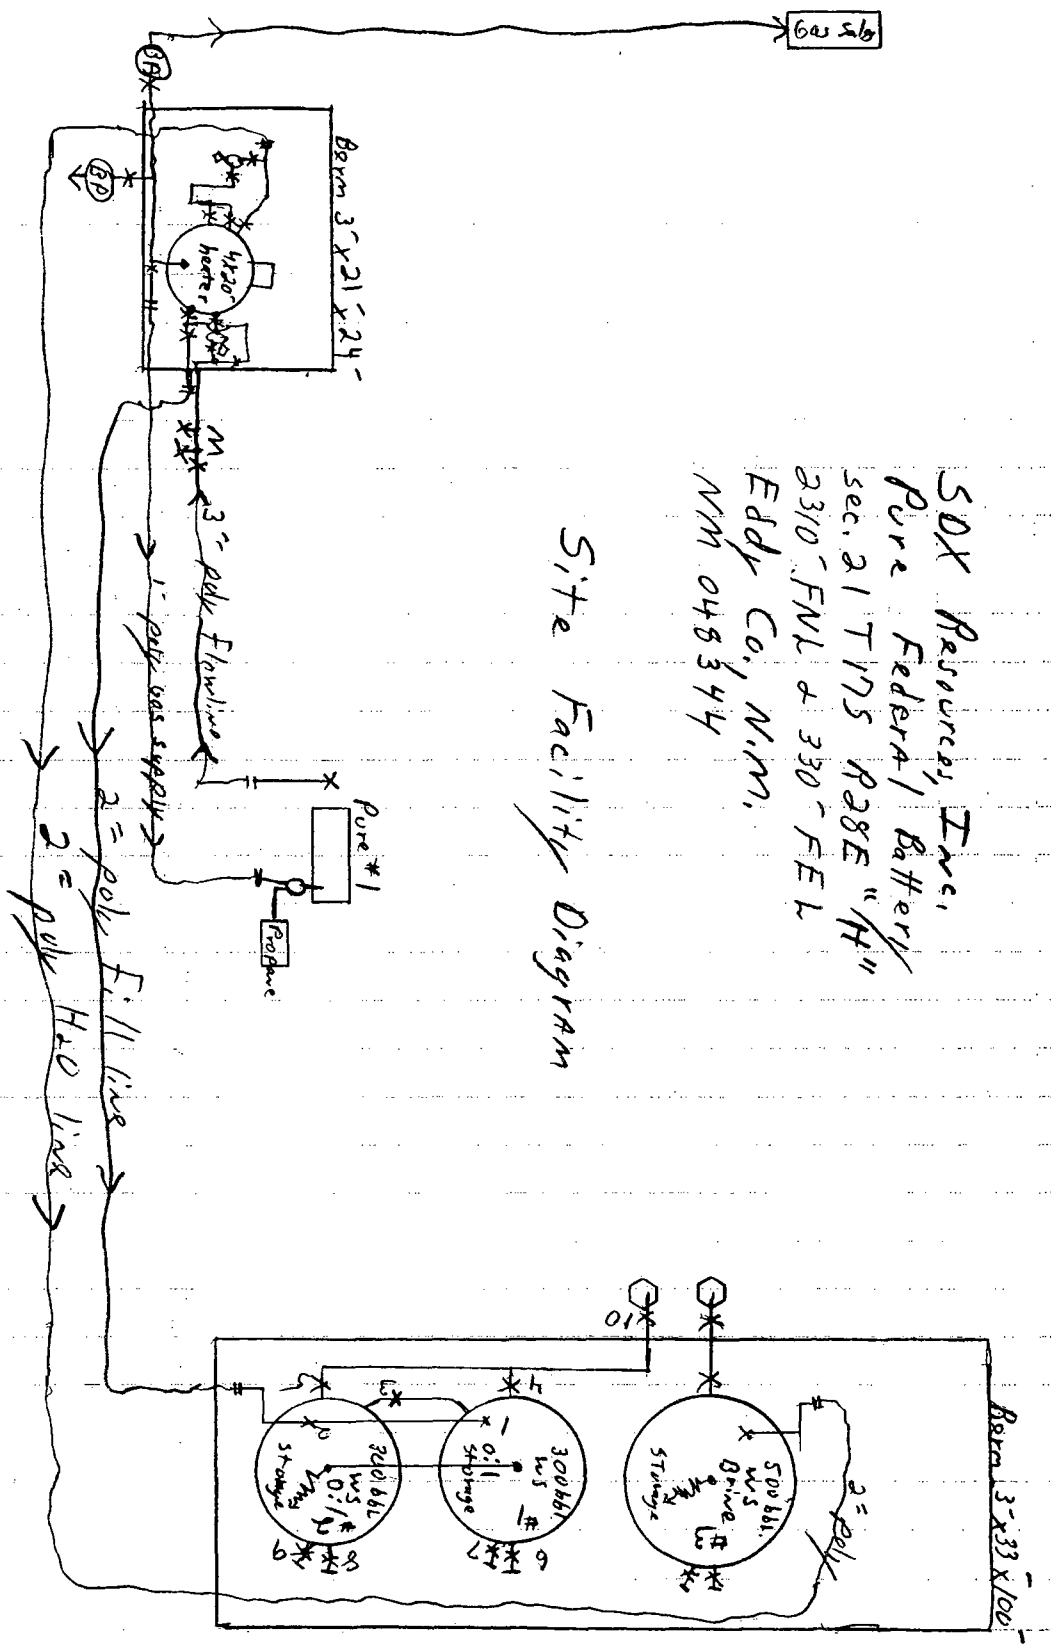 SDX Resources, Inc.
Pure Federal Battery
sec. 21 T17S R28E "H"
2310' FNL & 330' FEL
Eddy Co., N.M.
NM 048344
Site Facility Diagram
Gas Sales
BP
Berm 3' x 21' x 24'
4x20'
heater
M
3" poly flowline
1" poly gas supply
Pure #1
Propane
2" poly Fill line
2" poly H2O line
Berm 3' x 33' x 100'
2" poly
500 bbl.
WS
Brine
#3
Storage
300 bbl.
WS
#1
Oil
Storage
300 bbl
WS
Oil #2
Storage
1
2
3
4
5
6
7
8
9
10